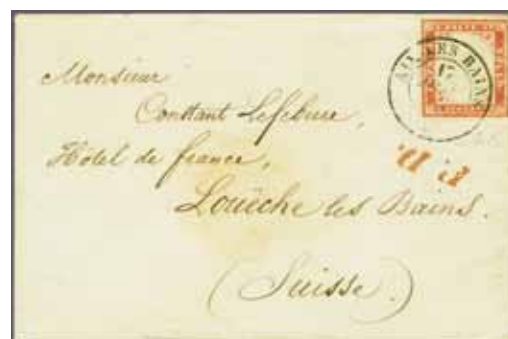 AIX LES BAINS
17
Monsieur
Constant Lefebure,
Hôtel de france,
P. D.
Louèche les Bains.
(Suisse.)